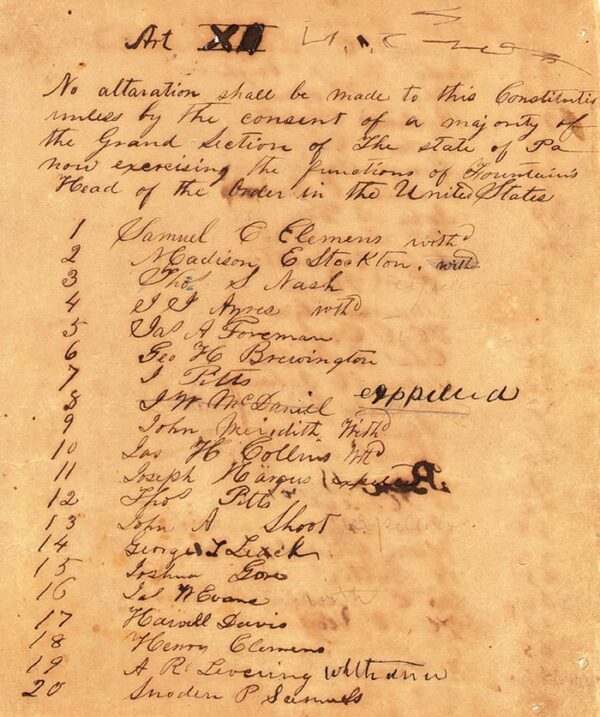 Art XII
No altaration shall be made to this Constitutio
unless by the consent of a majority of
the Grand Section of The state of Pa
now exercising the functions of Fountain
Head of the Order in the United States
1 Samuel C Clemens withd
2 Madison C Stockton. withd
3 Thos S Nash
4 J J Ayres withd
5 Jas A Foreman
6 Geo H Brewington
7 J Pitts
8 J W McDaniel expelled
9 John Meredith Withd
10 Jas H Collins Wtd
11 Joseph Hargus expelled
12 Thos Pitts
13 John A Shoot
14 George L Leack
15 Joshua Gore
16 Jas W Evans
17 Harvell Davis
18 Henry Clemens
19 A R Levering Withdrew
20 Snoden P Samuels